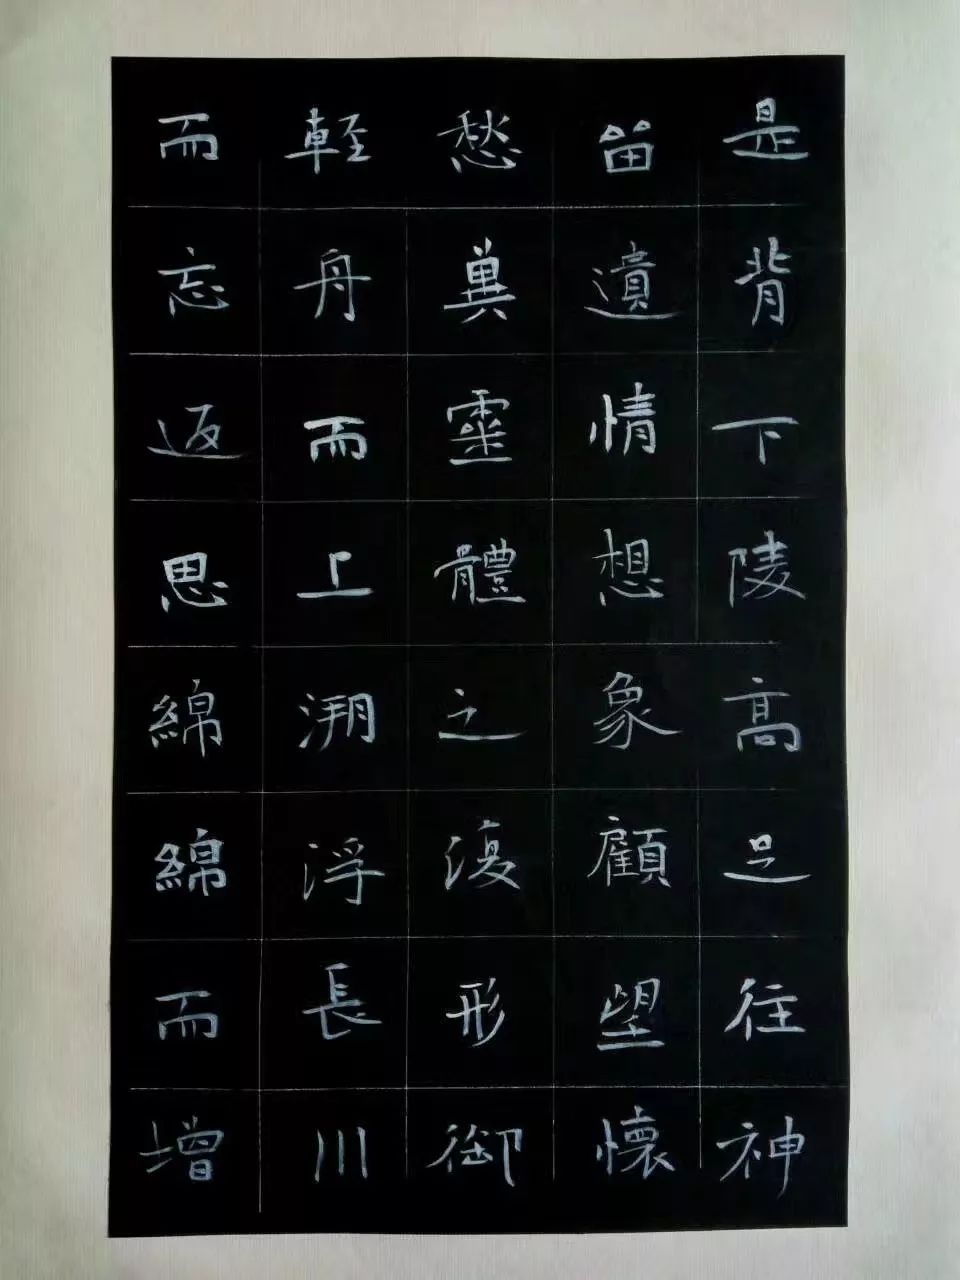 是背下陵高足往神
留遺情想象顧望懷
愁兾靈體之復形御
輕舟而上溯浮長川
而忘返思綿綿而增